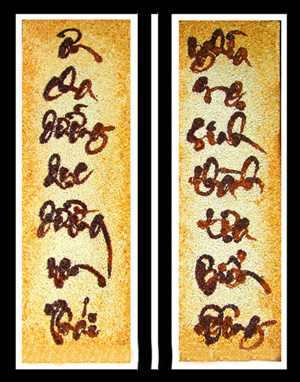 Ơn
Cha
dưỡng
dục
dường
non
Thái
Nghĩa
mẹ
sinh
thành
tựa
biển
Đông